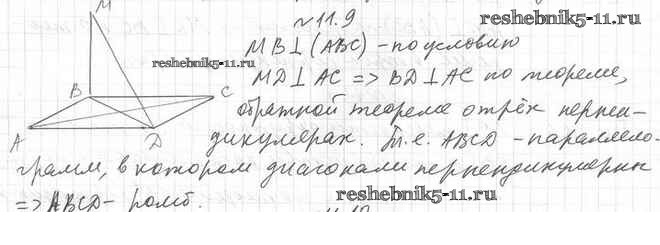 №11.9
reshebnik5-11.ru
M
MB⊥(ABC) - по условию
reshebnik5-11.ru
MD⊥AC => BD⊥AC по теореме,
B
C
обратной теореме о трёх перпен-
A
D
дикулярах. Т.е. ABCD - параллело-
грамм, в котором диагонали перпендикулярны
=> ABCD - ромб.
reshebnik5-11.ru